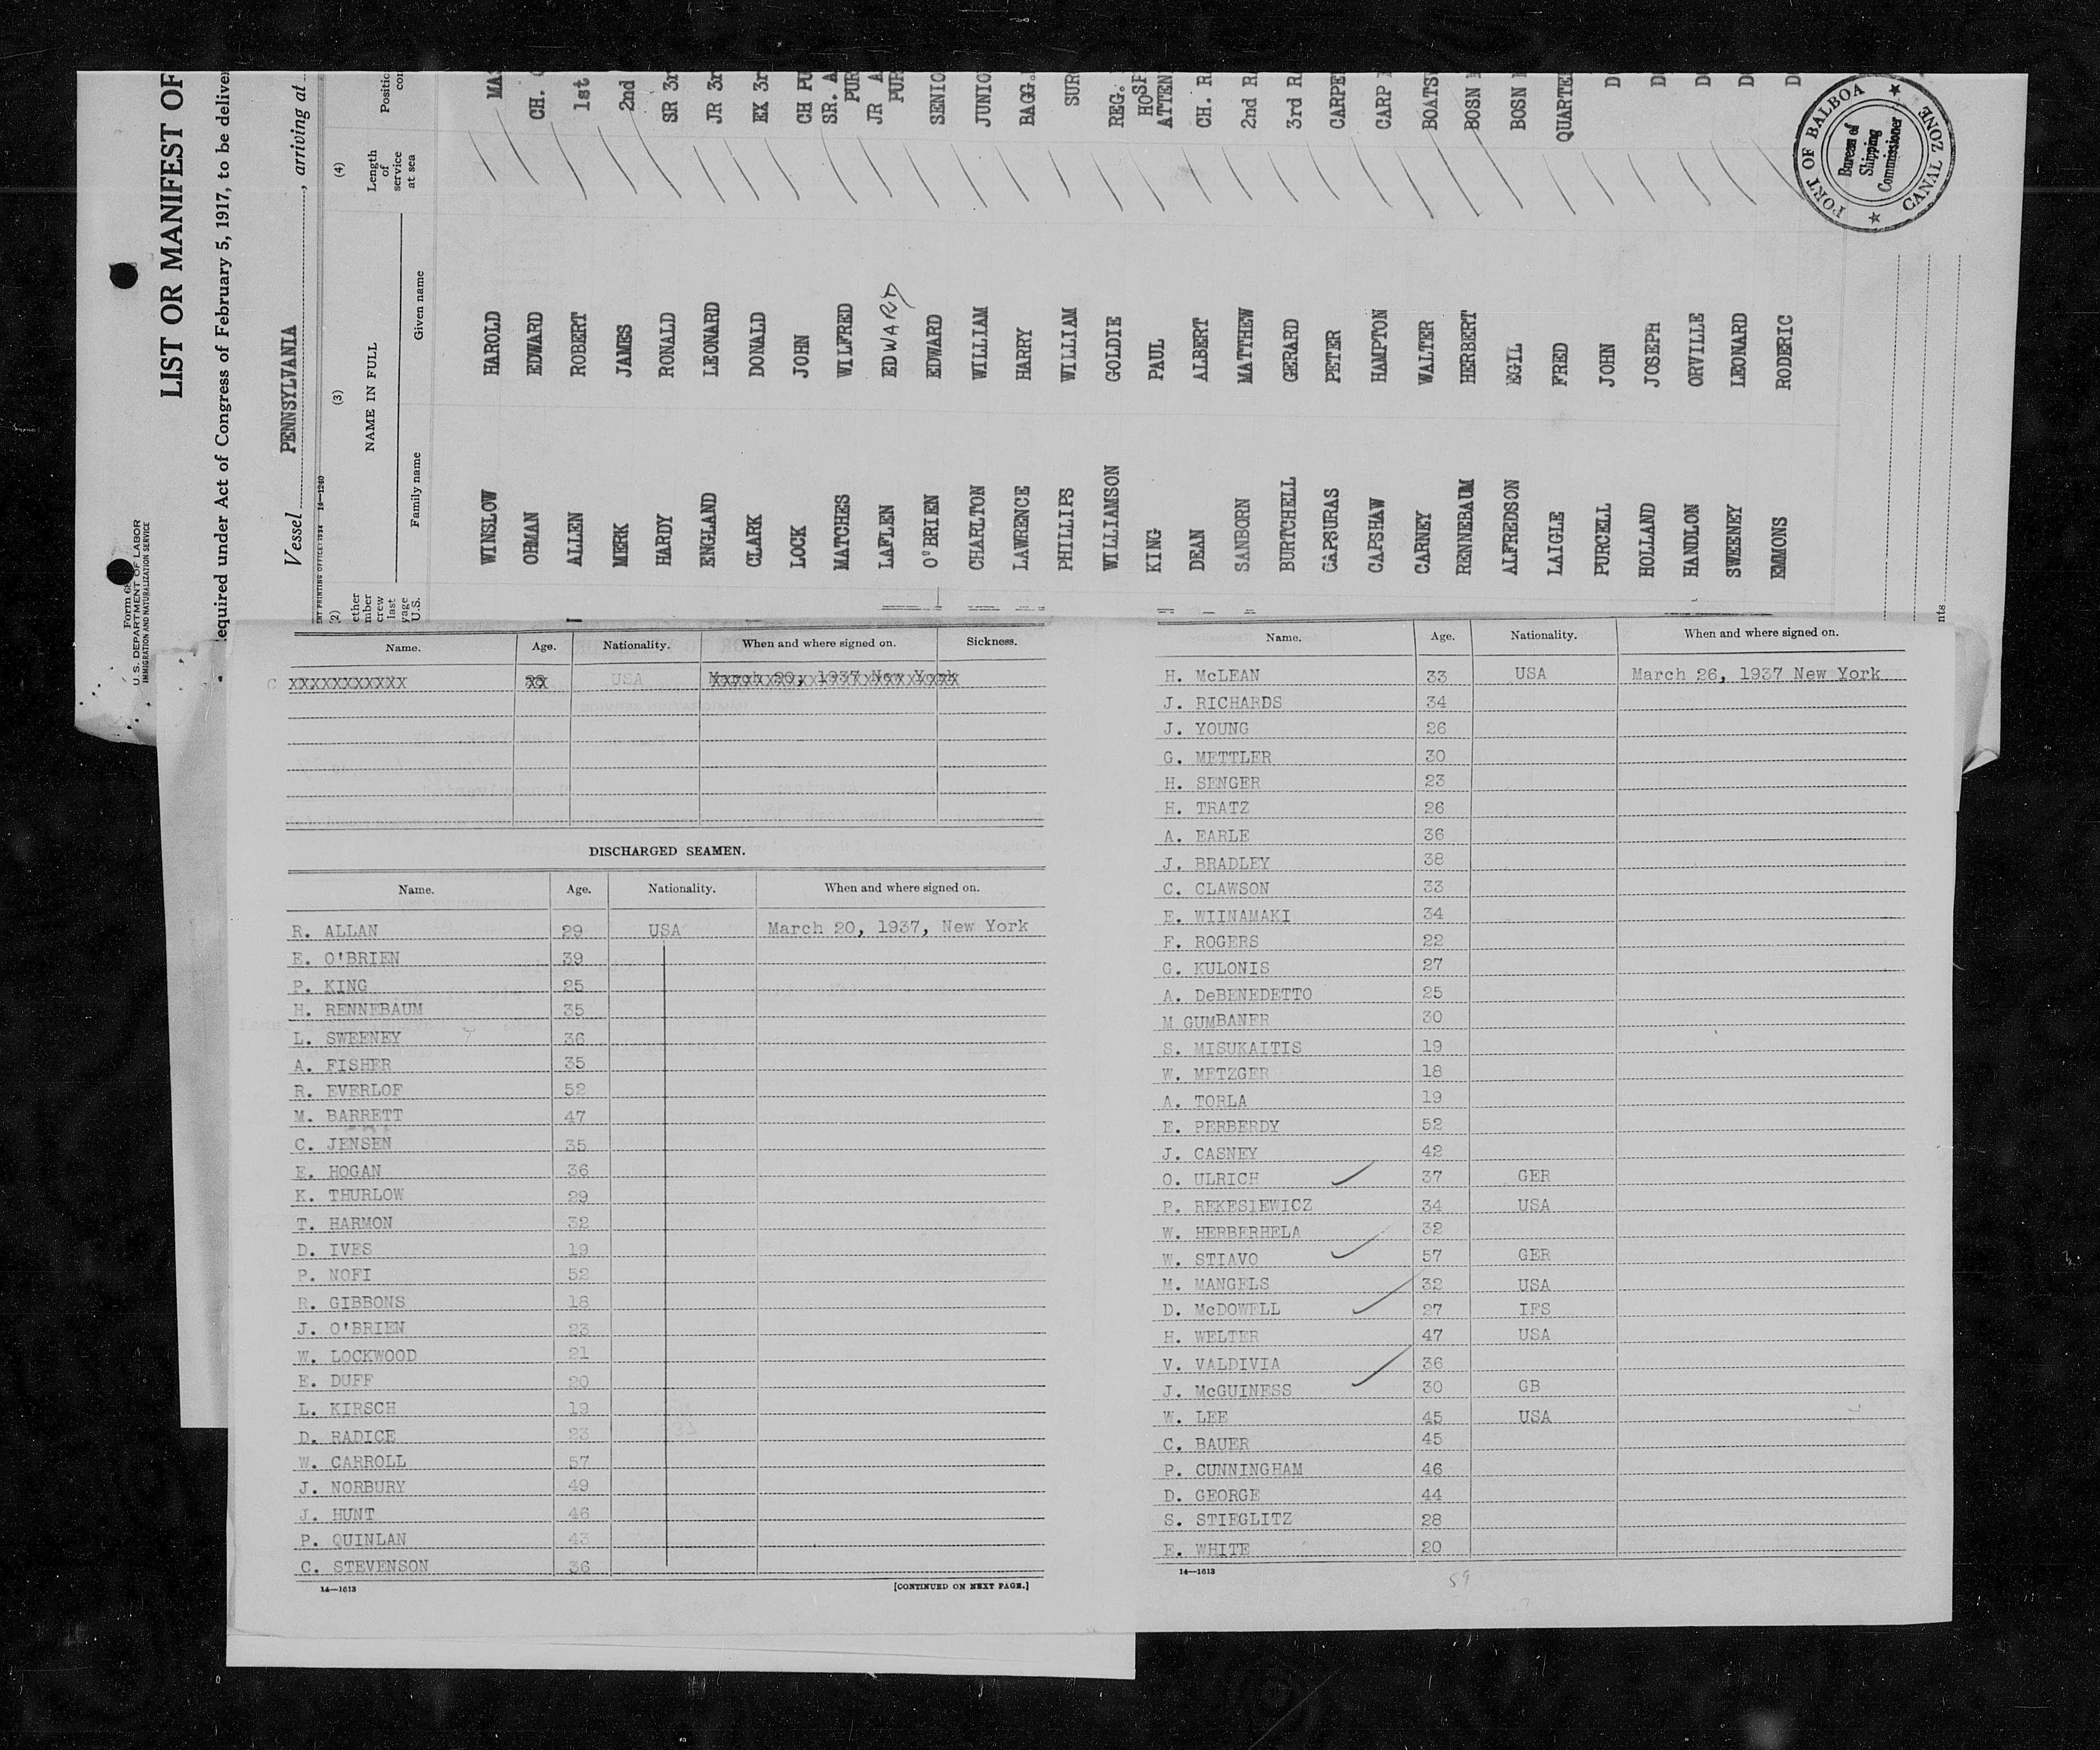 LIST OR MANIFEST OF
equired under Act of Congress of February 5, 1917, to be deliver
Form 68
U. S. DEPARTMENT OF LABOR
IMMIGRATION AND NATURALIZATION SERVICE
Vessel PENNSYLVANIA, arriving at
14—1240
(2) (3) (4)
NAME IN FULL
Family name Given name
Length of service at sea
WINSLOW HAROLD
ORMAN EDWARD CH.
ALLEN ROBERT 1st
MERK JAMES 2nd
HARDY RONALD SR 3r
ENGLAND LEONARD JR 3r
CLARK DONALD EX 3r
LOCK JOHN CH PU
MATCHES WILFRED SR. A PUR
LAFLEN EDWARD JR A PUR
O'BRIEN EDWARD SENIO
CHARLTON WILLIAM JUNIO
LAWRENCE HARRY BAGG.
PHILLIPS WILLIAM SUR
WILLIAMSON GOLDIE REG.
KING PAUL HOSP ATTEN
DEAN ALBERT CH. R
SANBORN MATTHEW 2nd R
BURTCHELL GERARD 3rd R
CAPSURAS PETER CARPE
CAPSHAW HAMPTON CARP
CARNEY WALTER BOATS
RENNEBAUM HERBERT BOSN
ALFREDSON EGIL BOSN
LAIGLE FRED QUARTE
PURCELL JOHN D
HOLLAND JOSEPH D
HANDLON ORVILLE D
SWEENEY LEONARD D
EMMONS RODERIC D
PORT OF BALBOA
Bureau of
Shipping
Commissioner
CANAL ZONE
Name. Age. Nationality. When and where signed on. Sickness.
XXXXXXXXXXX USA March 20, 1937 New York
DISCHARGED SEAMEN.
Name. Age. Nationality. When and where signed on.
R. ALLAN 29 USA March 20, 1937, New York
E. O'BRIEN 39
P. KING 25
H. RENNEBAUM 35
L. SWEENEY 36
A. FISHER 35
R. EVERLOF 52
M. BARRETT 47
C. JENSEN 35
E. HOGAN 36
K. THURLOW 29
T. HARMON 32
D. IVES 19
P. NOFI 52
R. GIBBONS 18
J. O'BRIEN 23
W. LOCKWOOD 21
E. DUFF 20
L. KIRSCH 19
D. RADICE 23
W. CARROLL 57
J. NORBURY 49
J. HUNT 46
P. QUINLAN 43
C. STEVENSON 36
14—1613 [CONTINUED ON NEXT PAGE.]
Name. Age. Nationality. When and where signed on.
H. McLEAN 33 USA March 26, 1937 New York
J. RICHARDS 34
J. YOUNG 26
G. METTLER 30
H. SENGER 23
H. TRATZ 26
A. EARLE 36
J. BRADLEY 38
C. CLAWSON 33
E. WIINAMAKI 34
F. ROGERS 22
G. KULONIS 27
A. DeBENEDETTO 25
M GUMBANER 30
S. MISUKAITIS 19
W. METZGER 18
A. TORLA 19
E. PERBERDY 52
J. CASNEY 42
O. ULRICH 37 GER
P. REKESIEWICZ 34 USA
W. HERBERHELA 32
W. STIAVO 57 GER
M. MANGELS 32 USA
D. McDOWELL 27 IFS
H. WELTER 47 USA
V. VALDIVIA 36
J. McGUINESS 30 GB
W. LEE 45 USA
C. BAUER 45
P. CUNNINGHAM 46
D. GEORGE 44
S. STIEGLITZ 28
E. WHITE 20
14—1613
59